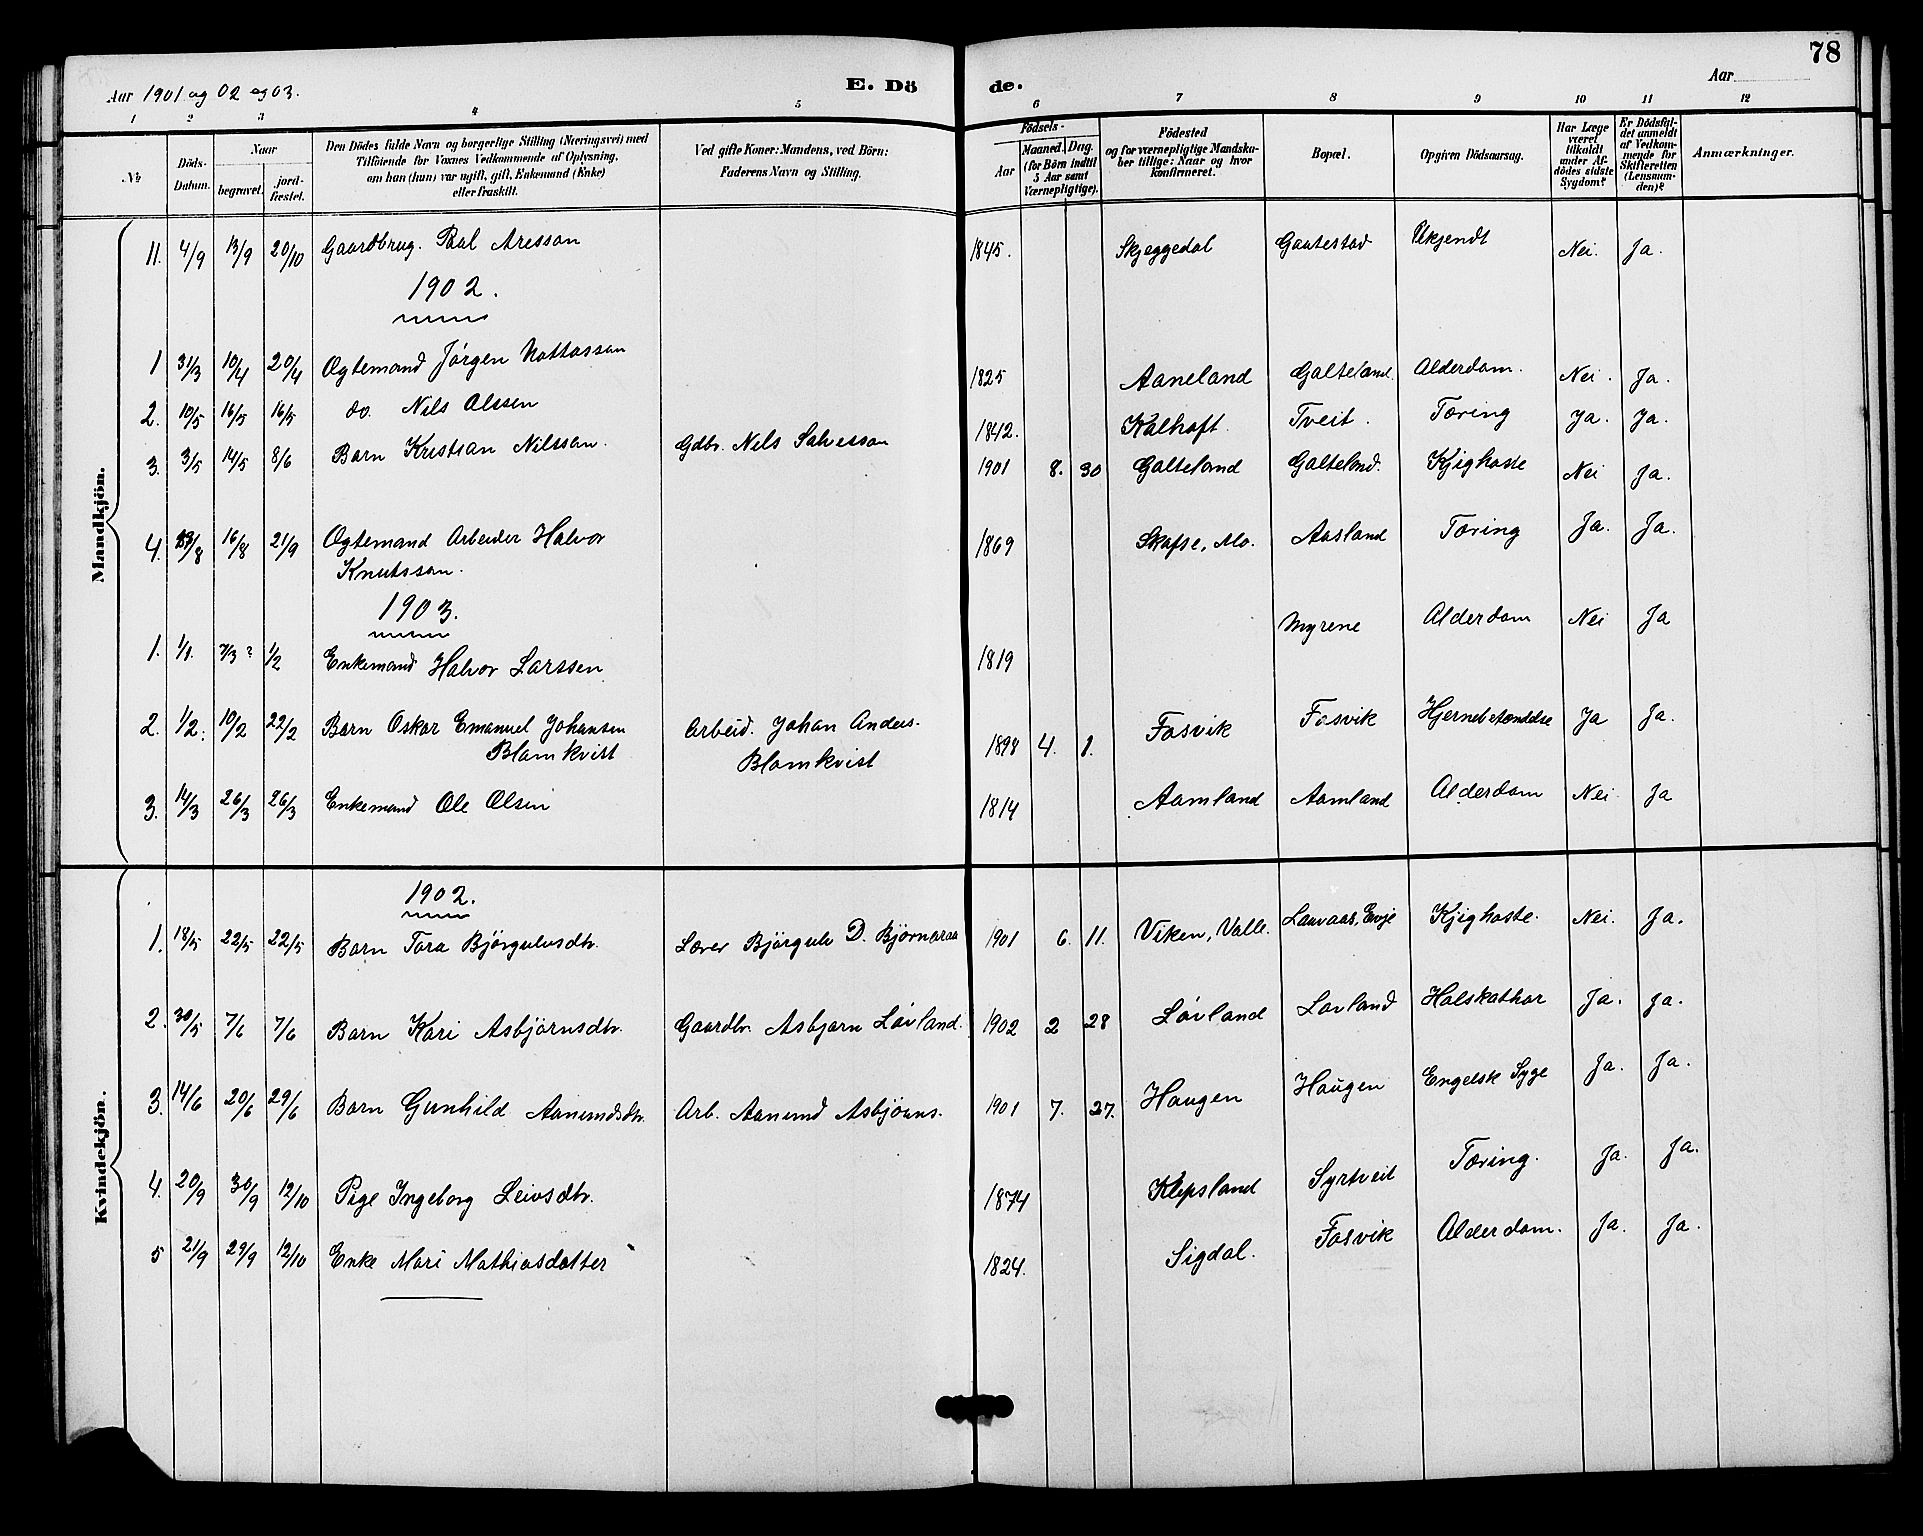 78
Aar 1901 og 02 og 03. E. Dö de. Aar
1 2 3 4 5 6 7 8 9 10 11 12
№ Döds-Datum. Naar begravet. jord-fæstet. Den Dödes fulde Navn og borgerlige Stilling (Næringsvei) med Tilföiende for Voxnes Vedkommende af Oplysning, om han (hun) var ugift, gift, Enkemand (Enke) eller fraskilt. Ved gifte Koner: Mandens, ved Börn: Faderens Navn og Stilling. Födsels- Aar Maaned. Dag. (for Börn indtil 5 Aar samt Værnepligtige). Födested og for værnepligtige Mandska-ber tillige: Naar og hvor konfirmeret. Bopæl. Opgiven Dödsaarsag. Har Læge været tilkaldt under Af-dödes sidste Sygdom? Er Dödsfal-det anmeldt af Vedkom-mende for Skifteretten (Lensman-den)? Anmærkninger.
Mandkjön.
11. 4/9 13/9 20/10 Gaardbrug. Paal Aresson 1845. Skjeggedal Gautestad Ukjendt Nei. Ja.
1902.
1 31/3 10/4 20/4 Ægtemand Jørgen Nottosson 1825 Aaneland Galteland. Alderdom. Nei. Ja.
2. 10/5 16/5 16/5 do. Nils Olssen 1842. Kålhoft. Tveit. Tæring Ja. Ja.
3. 3/5 14/5 8/6 Barn Kristian Nilsson. Gdbr. Nels Salvesson 1901 8. 30 Galteland Galteland. Kjighoste Nei Ja.
4. /8 16/8 21/9 Ægtemand Arbeider Halvor 1869 Skafse, Mo. Aasland Tæring Ja. Ja.
Knutsson.
1903.
1. 1/1. 7/3 ? 1/2 Enkemand Halvor Larssen 1819 Myrene Alderdom Nei Ja
2. 1/2. 10/2 22/2 Barn Oskar Emanuel Johansen Arbeid. Johan Anders. 1898 4. 1. Fosvik Fosvik Hjernebetændelse Ja Ja.
Blomkvist Blomkvist
3. 14/3 26/3 26/3 Enkemand Ole Olsen 1814 Aamland Aamland Alderdom Nei Ja
Kvindekjön.
1902.
1. 18/5 22/5 22/5 Barn Tora Bjørgulvsdtr. Lærer Bjørgulv D. Bjørnaraa 1901 6. 11. Viken, Valle. Lauvaas, Evje Kjighoste. Nei. Ja.
2. 30/5 7/6 7/6 Barn Kari Asbjørnsdtr. Gaardbr. Asbjørn Løvland. 1902 2 28 Løvland Løvland Halskathar Ja. Ja.
3. 14/6 20/6 29/6 Barn Gunhild Aanundsdtr. Arb. Aanund Asbjørns. 1901 7. 27. Haugen Haugen Engelsk Syge Ja. Ja.
4. 20/9 30/9 12/10 Pige Ingeborg Leivsdtr. 1874 Klepsland Syrtveit Tæring. Ja. Ja.
5 21/9 29/9 12/10 Enke Mari Mathiasdotter 1824. Sigdal. Fosvik Alderdom. Ja. Ja.